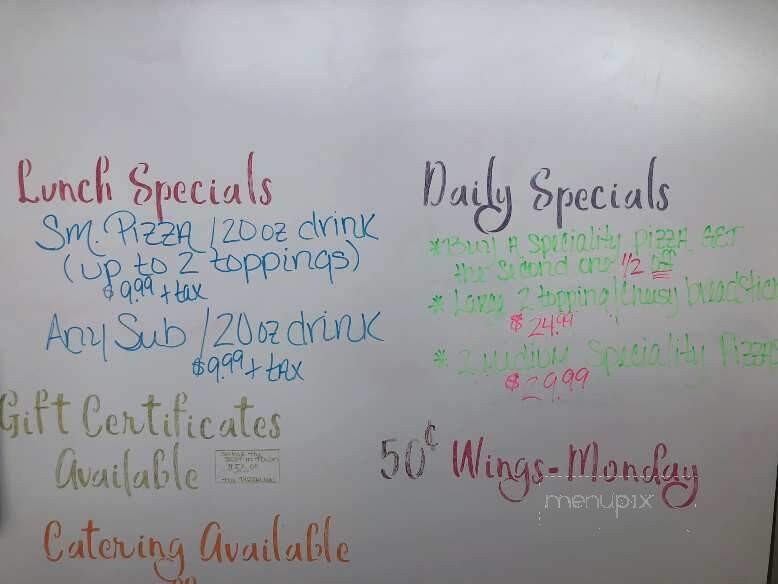 Lunch Specials
Sm. Pizza / 20 oz drink
(up to 2 toppings)
$9.99 + tax
Any Sub / 20 oz drink
$9.99 + tax
Gift Certificates
Available
Catering Available
Daily Specials
* Buy A Speciality pizza GET
the Second one 1/2 off
* Large 2 topping / cheesy breadstic
$24.99
* 2 Medium Speciality Pizzas
$29.99
50¢ Wings - Monday
menupix